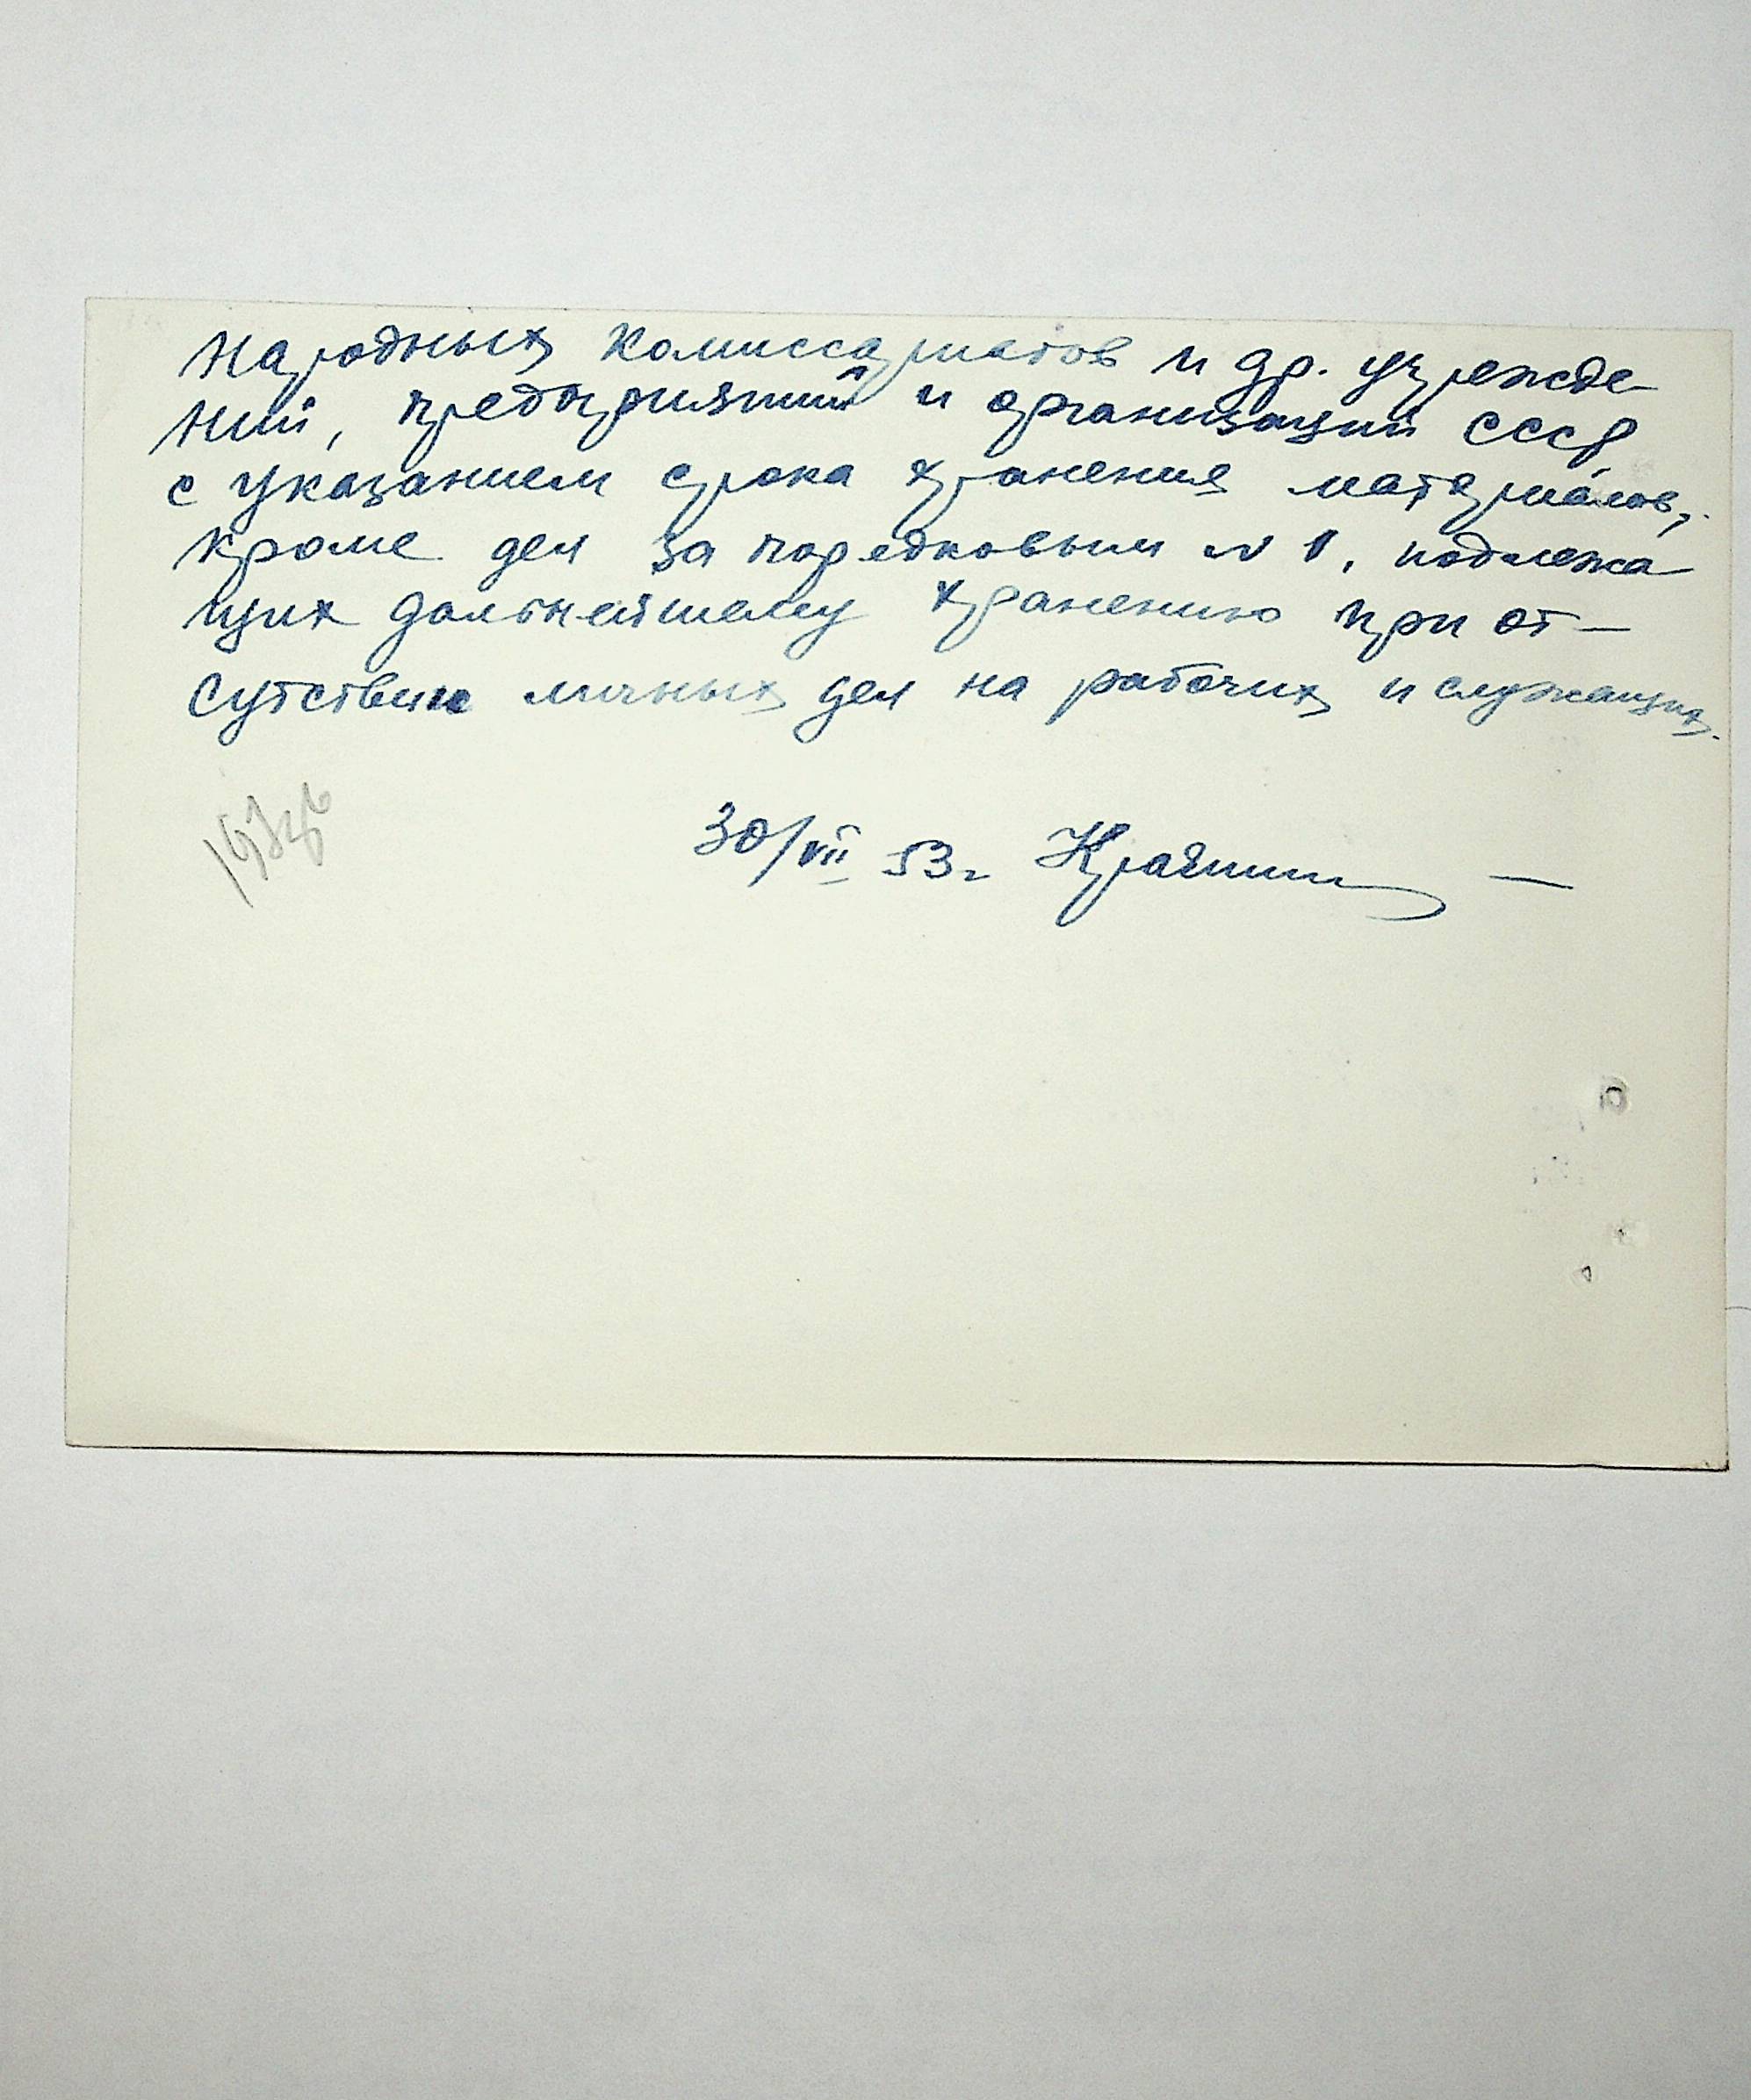 Народных Комиссариатов и др. учрежде-
ний, предприятий и организаций СССР
с указанием срока хранения материалов,
кроме дел за поредковым № 1, подлежа
щих дальнейшему хранению при от-
сутствии личных дел на рабочих и служащих.
30/VII 53г.